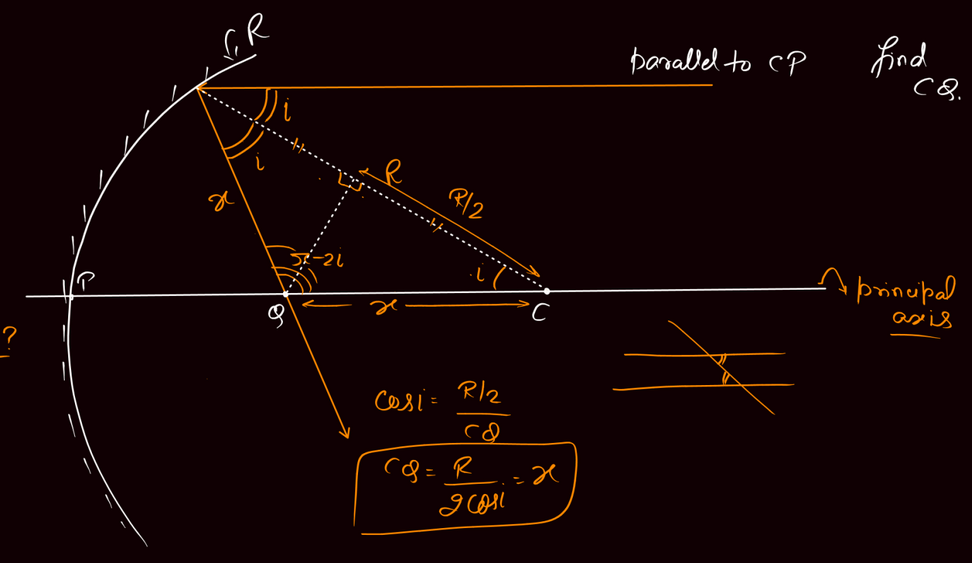 R
parallel to CP
find
CQ.
i
i
R
R/2
x
π-2i
i
P
Q
x
C
principal
axis
?
cos i = R/2
CQ
CQ = R = x
2cos i